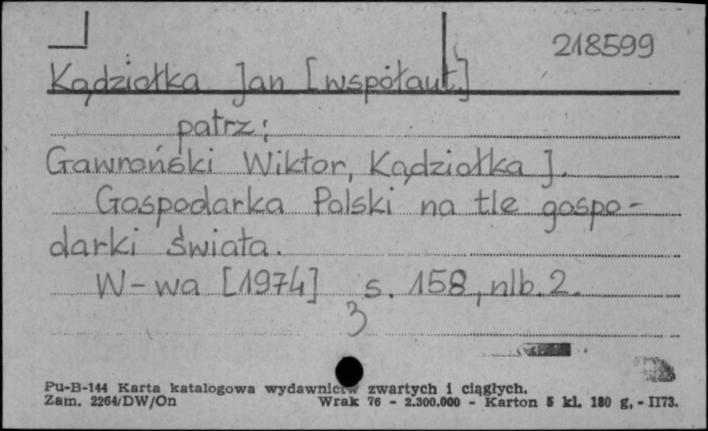 218599
Kądziołka Jan [współaut.]
patrz:
Gawroński Wiktor, Kądziołka J.
Gospodarka Polski na tle gospo-
darki świata.
W-wa [1974] s. 158, nlb. 2.
3
Pu-B-144 Karta katalogowa wydawnictw zwartych i ciągłych.
Zam. 2264/DW/On Wrak 76 - 2.300.000 - Karton 5 kl. 180 g, - II73.